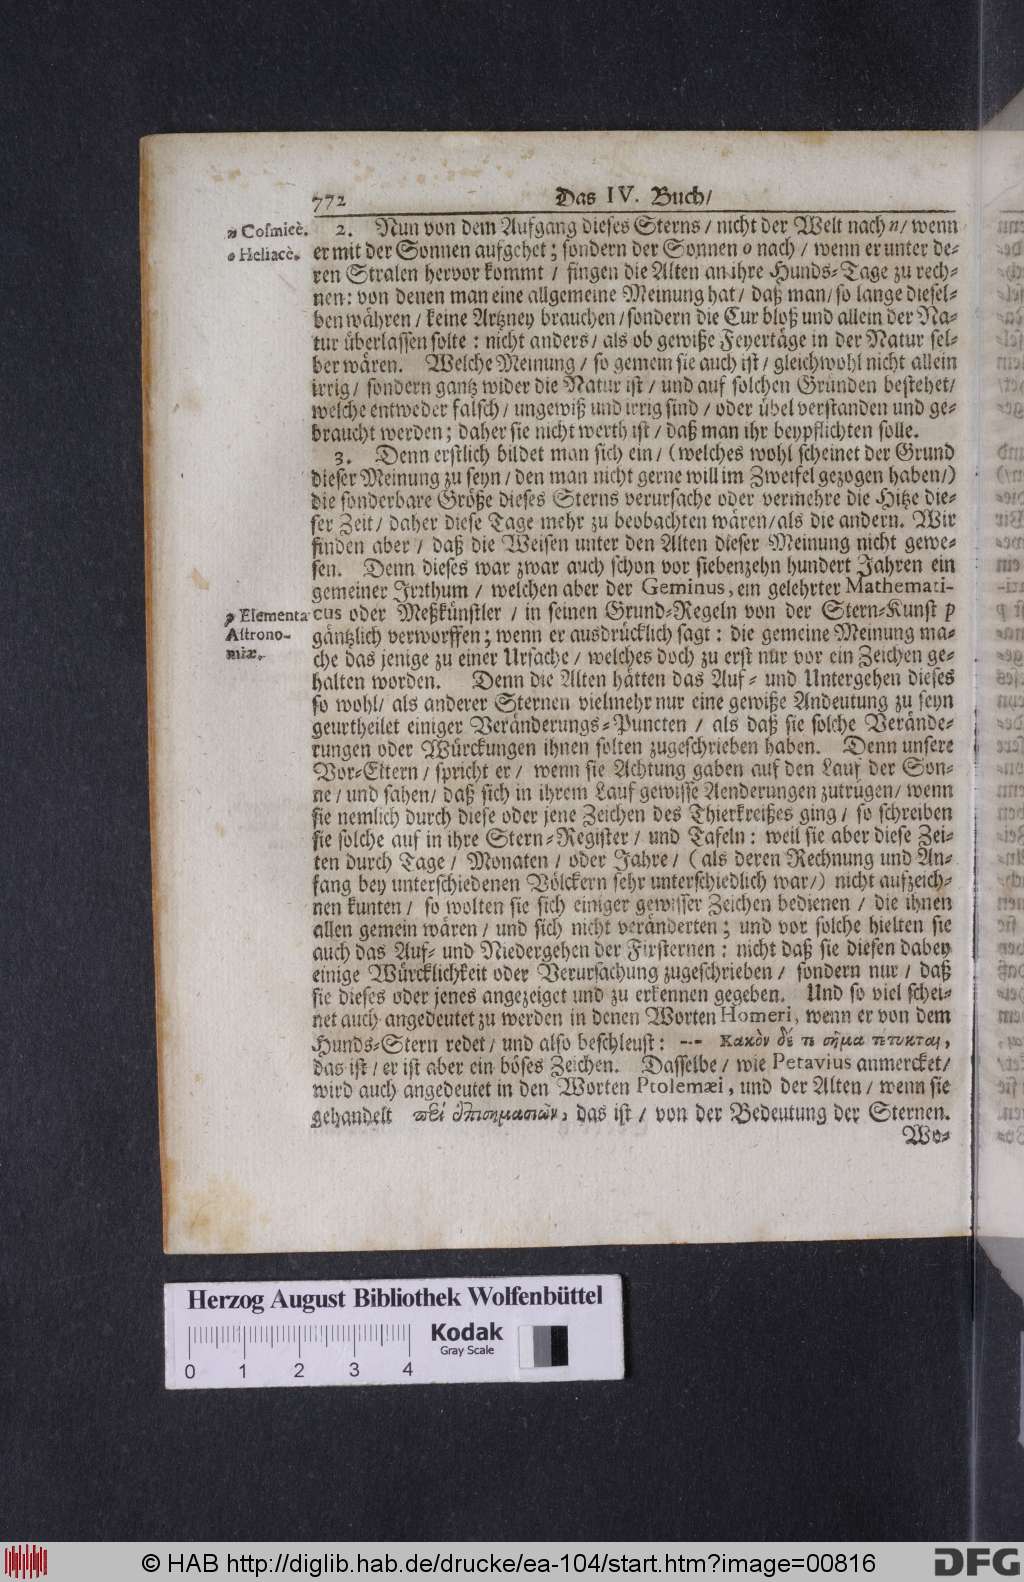 772 Das IV. Buch/
n Cosmicè.
o Heliacè.
2. Nun von dem Aufgang dieses Sterns / nicht der Welt nach n / wenn
er mit der Sonnen aufgehet; sondern der Sonnen o nach / wenn er unter de-
ren Stralen hervor kommt / fingen die Alten an ihre Hunds-Tage zu rech-
nen: von denen man eine allgemeine Meinung hat / daß man / so lange diesel-
ben währen / keine Artzney brauchen / sondern die Cur bloß und allein der Na-
tur überlassen solte: nicht anders / als ob gewiße Feyertäge in der Natur sel-
ber wären. Welche Meinung / so gemein sie auch ist / gleichwohl nicht allein
irrig / sondern gantz wider die Natur ist / und auf solchen Gründen bestehet /
welche entweder falsch / ungewiß und irrig sind / oder übel verstanden und ge-
braucht werden; daher sie nicht werth ist / daß man ihr beypflichten solle.
3. Denn erstlich bildet man sich ein / (welches wohl scheinet der Grund
dieser Meinung zu seyn / den man nicht gerne will im Zweifel gezogen haben /)
die sonderbare Größe dieses Sterns verursache oder vermehre die Hitze die-
ser Zeit / daher diese Tage mehr zu beobachten wären / als die andern. Wir
finden aber / daß die Weisen unter den Alten dieser Meinung nicht gewe-
sen. Denn dieses war zwar auch schon vor siebenzehn hundert Jahren ein
gemeiner Irrthum / welchen aber der Geminus, ein gelehrter Mathemati-
p Elementa
Astrono-
miæ.
cus oder Meßkünstler / in seinen Grund-Regeln von der Stern-Kunst p
gäntzlich verworffen; wenn er ausdrücklich sagt: die gemeine Meinung ma-
che das jenige zu einer Ursache / welches doch zu erst nur vor ein Zeichen ge-
halten worden. Denn die Alten hätten das Auf- und Untergehen dieses
so wohl / als anderer Sternen vielmehr nur eine gewiße Andeutung zu seyn
geurtheilet einiger Veränderungs-Puncten / als daß sie solche Verände-
rungen oder Würckungen ihnen solten zugeschrieben haben. Denn unsere
Vor-Eltern / spricht er / wenn sie Achtung gaben auf den Lauf der Son-
ne / und sahen / daß sich in ihrem Lauf gewisse Aenderungen zutrügen / wenn
sie nemlich durch diese oder jene Zeichen des Thierkreißes ging / so schreiben
sie solche auf in ihre Stern-Register / und Tafeln: weil sie aber diese Zei-
ten durch Tage / Monaten / oder Jahre / (als deren Rechnung und An-
fang bey unterschiedenen Völckern sehr unterschiedlich war /) nicht aufzeich-
nen kunten / so wolten sie sich einiger gewisser Zeichen bedienen / die ihnen
allen gemein wären / und sich nicht veränderten; und vor solche hielten sie
auch das Auf- und Niedergehen der Firsternen: nicht daß sie diesen dabey
einige Würcklichkeit oder Verursachung zugeschrieben / sondern nur / daß
sie dieses oder jenes angezeiget und zu erkennen gegeben. Und so viel schei-
net auch angedeutet zu werden in denen Worten Homeri, wenn er von dem
Hunds-Stern redet / und also beschleust: --- Κακὸν δέ τε σῆμα τέτυκται,
das ist / er ist aber ein böses Zeichen. Dasselbe / wie Petavius anmercket /
wird auch angedeutet in den Worten Ptolemæi, und der Alten / wenn sie
gehandelt περὶ ἐπισημασιῶν, das ist / von der Bedeutung der Sternen.
Wo-
Herzog August Bibliothek Wolfenbüttel
Kodak
Gray Scale
0 1 2 3 4
© HAB http://diglib.hab.de/drucke/ea-104/start.htm?image=00816
DFG